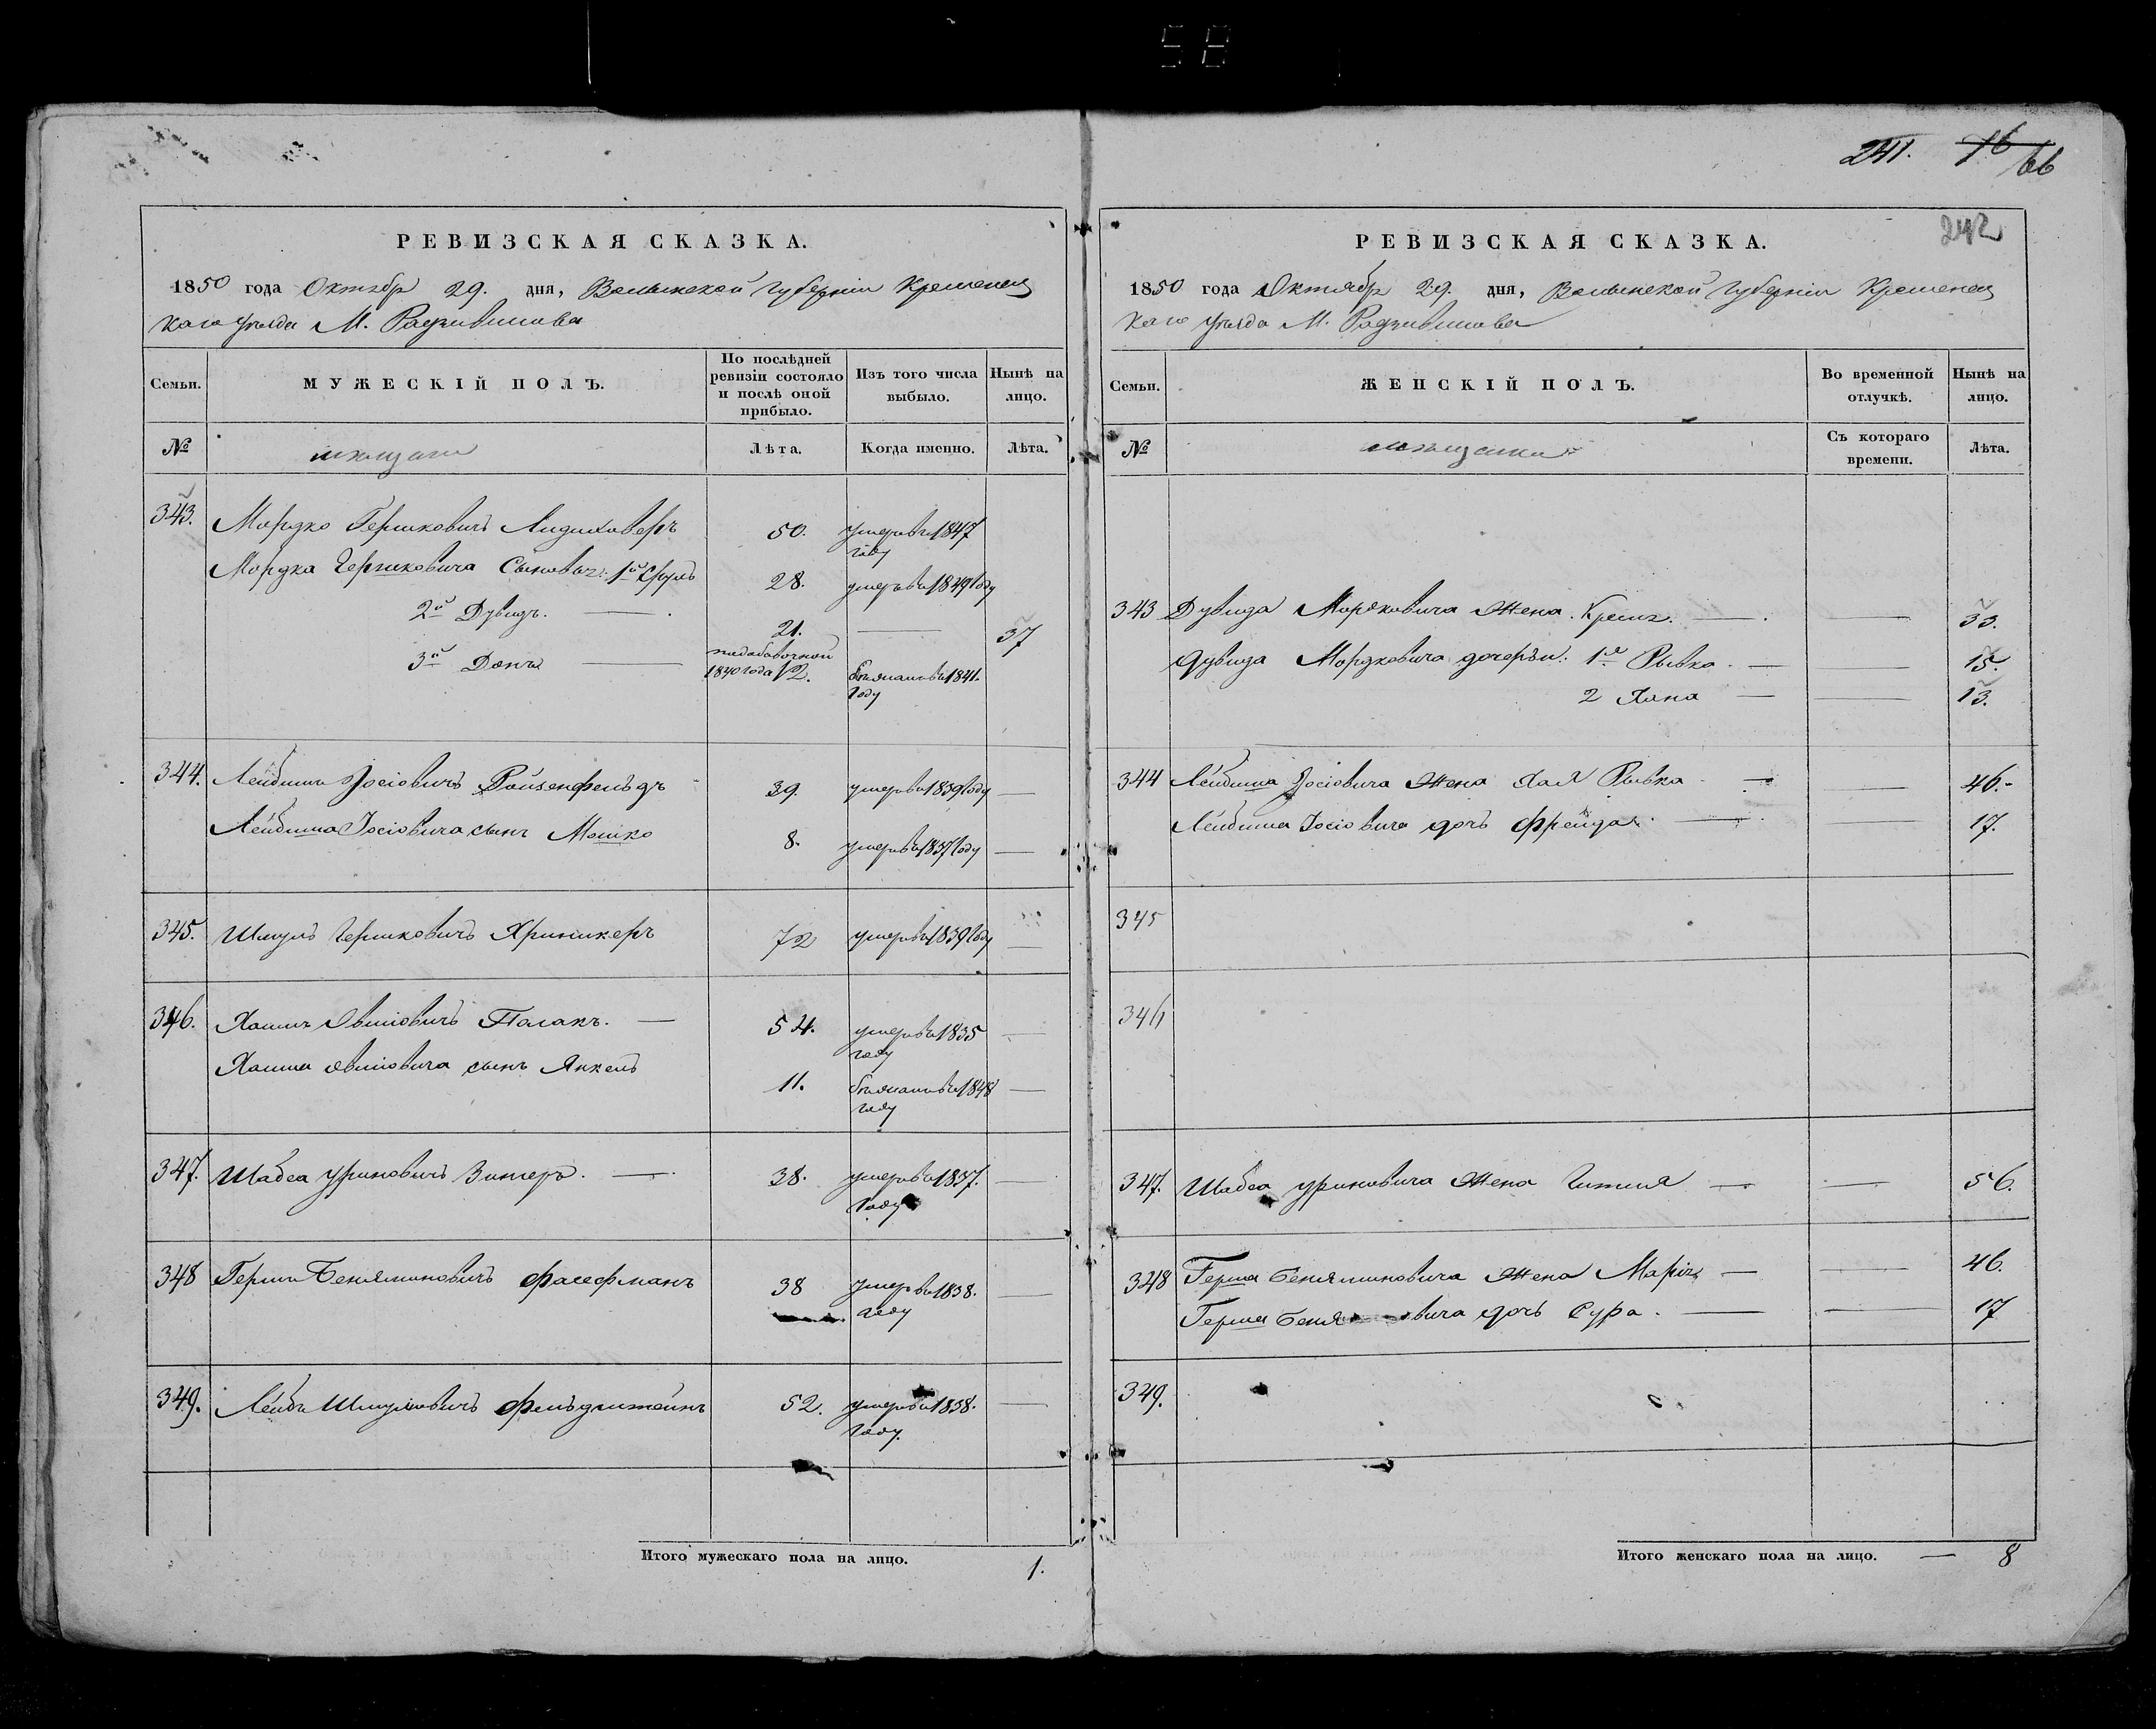 58
241. 16/66
РЕВИЗСКАЯ СКАЗКА.
1850 года Октября 29. дня, Волынской губерніи Кременец
каго уѣзда М. Радзивилова
Семьи.
МУЖЕСКІЙ ПОЛЪ.
По послѣдней ревизіи состояло и послѣ оной прибыло.
Изъ того числа выбыло.
Нынѣ на лицо.
№
мѣщане
Лѣта.
Когда именно.
Лѣта.
343. Мордко Гершковичъ 50. умеръ въ 1847 году
Мордка Гершковича Сыновья: 1й Сруль 28. умеръ въ 1849 году
2й Дувидъ. — 21. — 37
3й — 1840 года 12. въ 1841. году
344. Лейбишъ Іосіовичъ Ройзенфельдъ 39. умеръ въ 1839 году —
Лейбиша Іосіовича сынъ Мошко 8. умеръ въ 1837 году —
345. Шмуль Гершковичъ 72 умеръ въ 1839 году —
346. Хаимъ Полакъ. — 54. умеръ въ 1835 году —
Хаима сынъ Янкель 11. въ 1848 году —
347. Шабса Зитеръ. — 38. умеръ въ 1837. году —
348 Герши Беняминовичъ 38 умеръ въ 1838. году —
349. Лейба Шмуліовичъ Фельдштейнъ 52. умеръ въ 1838. году —
Итого мужескаго пола на лицо. 1.
242
РЕВИЗСКАЯ СКАЗКА.
1850 года Октября 29. дня, Волынской Губерніи Кременец
каго уѣзда М. Радзивилова
Семьи.
ЖЕНСКІЙ ПОЛЪ.
Во временной отлучкѣ.
Нынѣ на лицо.
№
мѣщанки
Съ котораго времени.
Лѣта.
343 Дувида Мордковича Жена. — — 33.
Дувида Мордковича дочери: 1я Рывка. — — 15.
2 Хана — — 13.
344 Лейбиша Іосіовича Жена Хая Рывка — — 46.
Лейбиша Іосіовича дочь Фрейда. — — 17.
345
346
347. Шабса Жена Гитля — — 56.
348 Герша Беняминовича Жена — — 46.
Герша дочь Сура. — — 17
349.
Итого женскаго пола на лицо. — 8